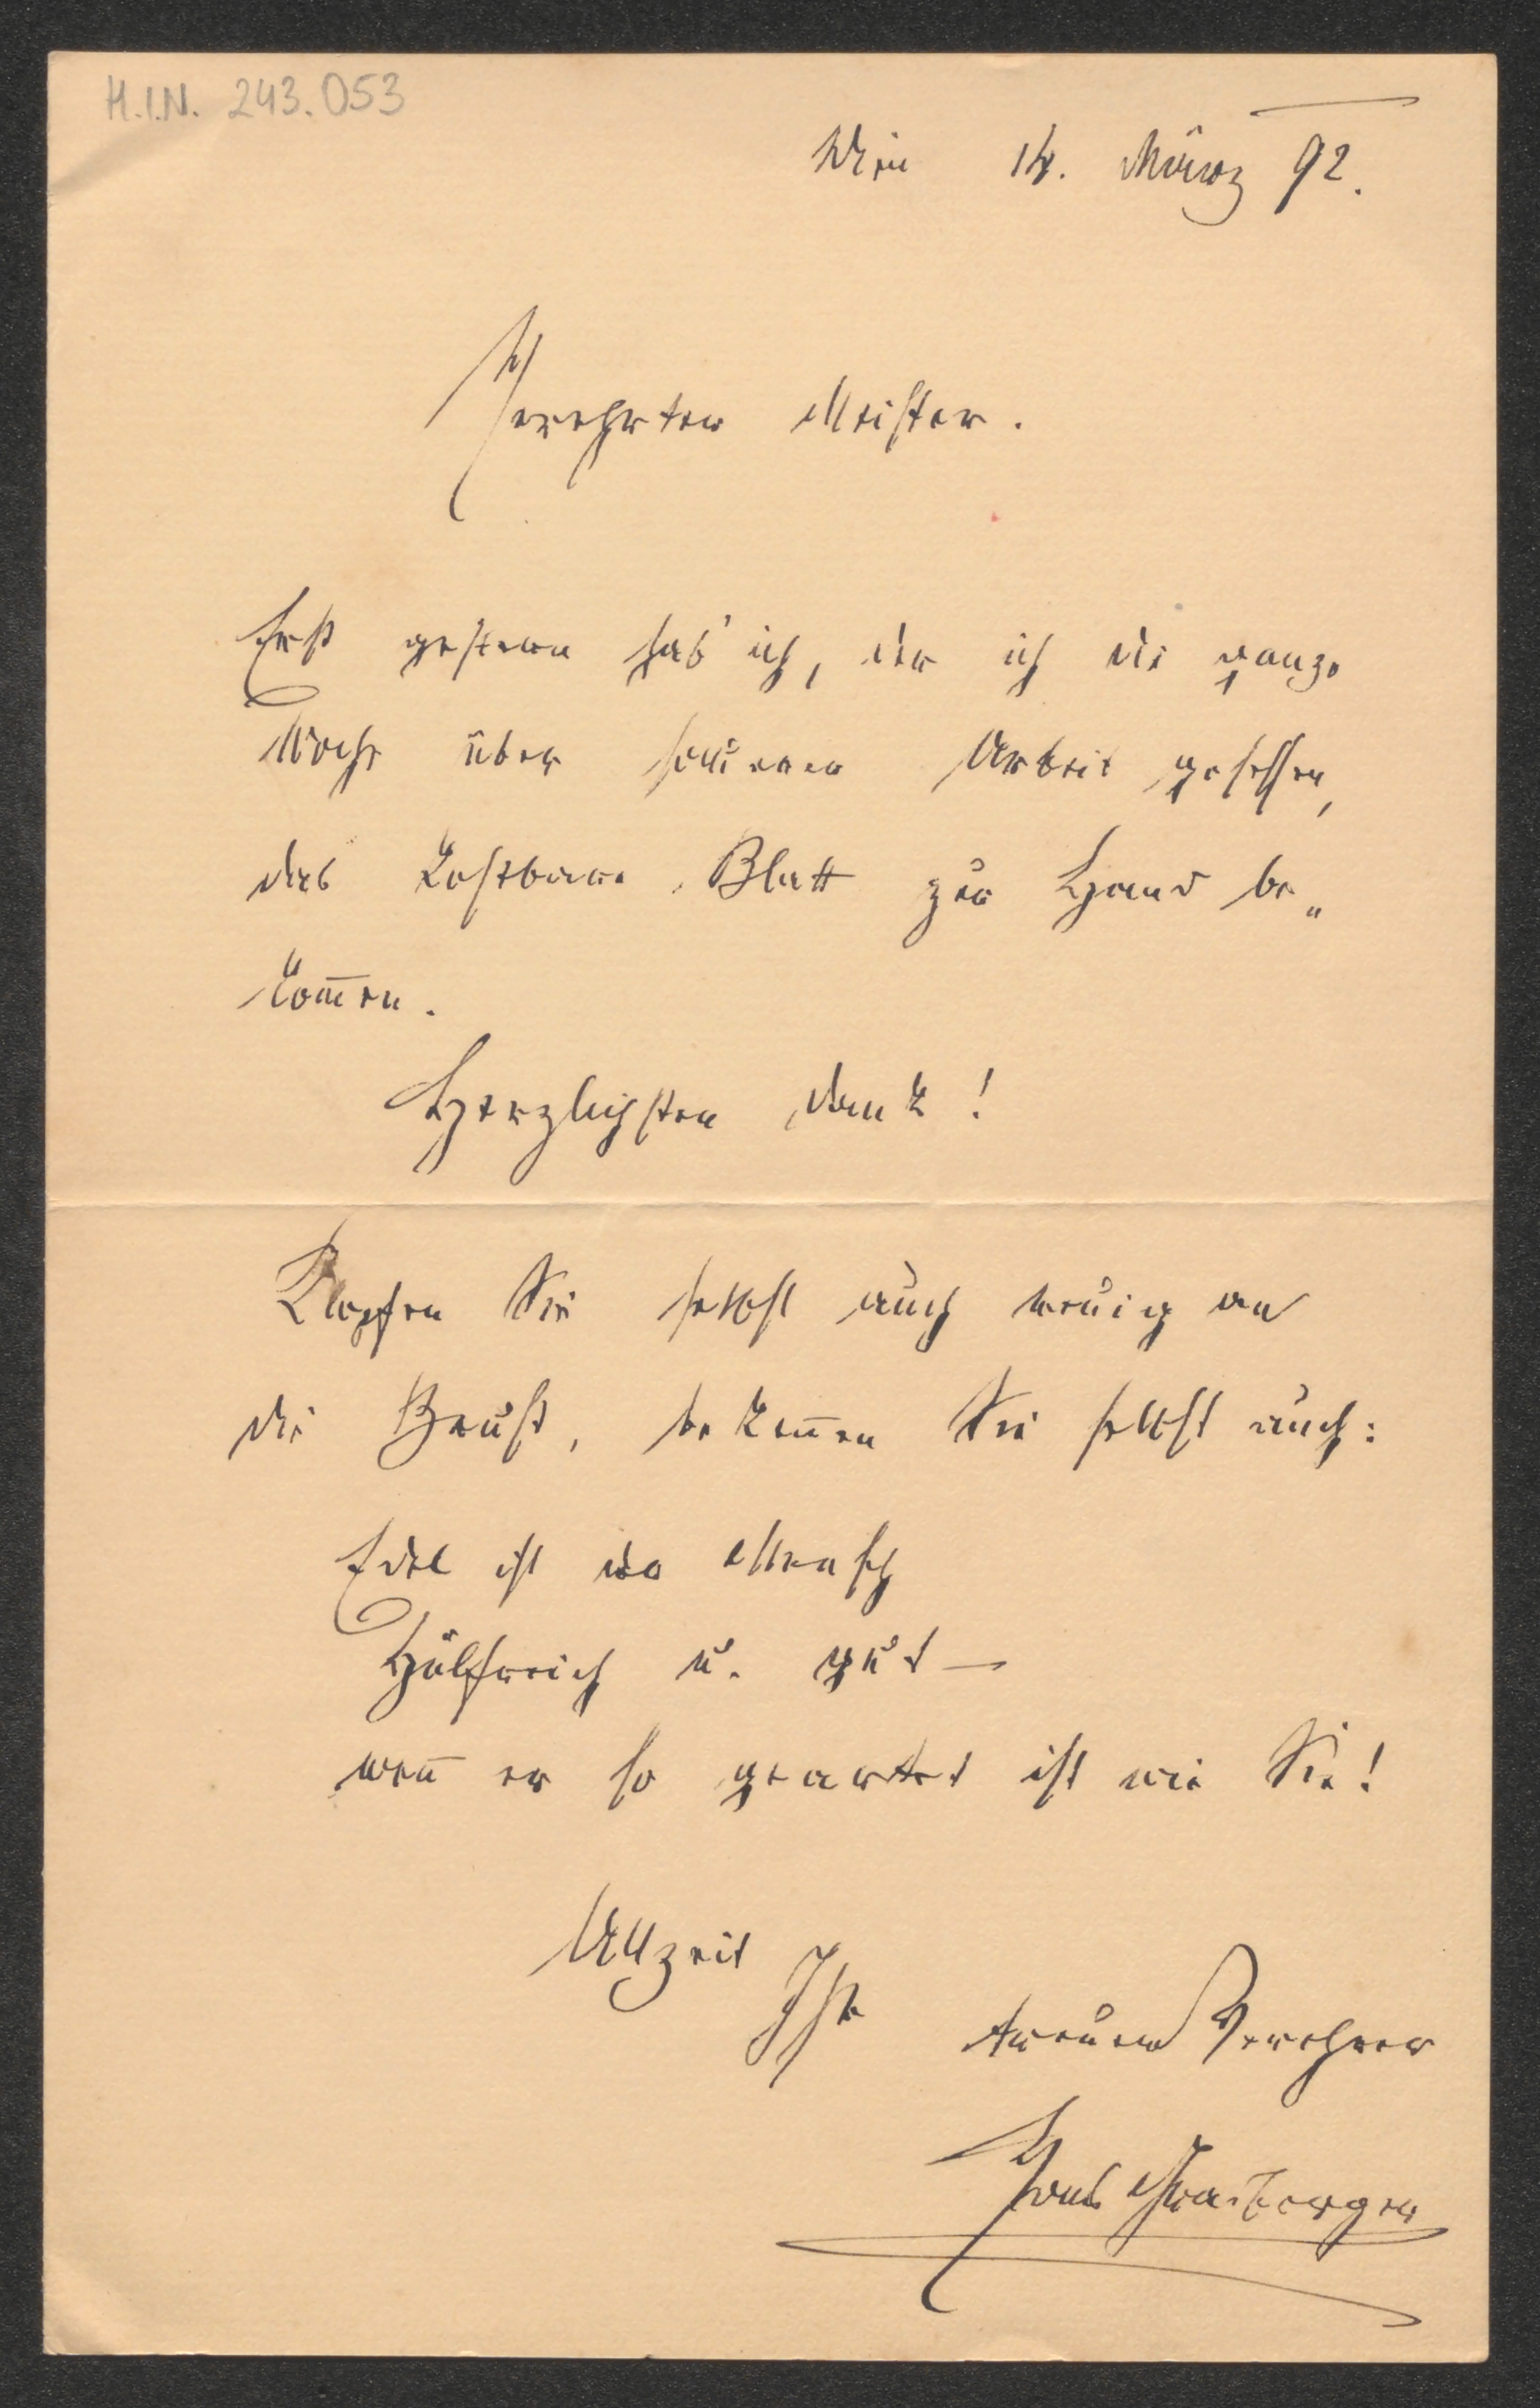 H.I.N. 243.053
Wien 14. März 92.
Verehrter Meister.
Erst gestern hab' ich, der ich die ganze
Woche über schwerer Arbeit gesessen,
das kostbare Blatt zur Hand be„
kom̅en.
Herzlichsten Dank!
Klopfen Sie selbst auch wenig an
die Brust, beken̅en Sie selbst auch:
Edel ist der Mensch
Hülfreich u. gut —
wen̅ er so geartet ist wie Sie!
Allzeit
Ihr treuer Verehrer